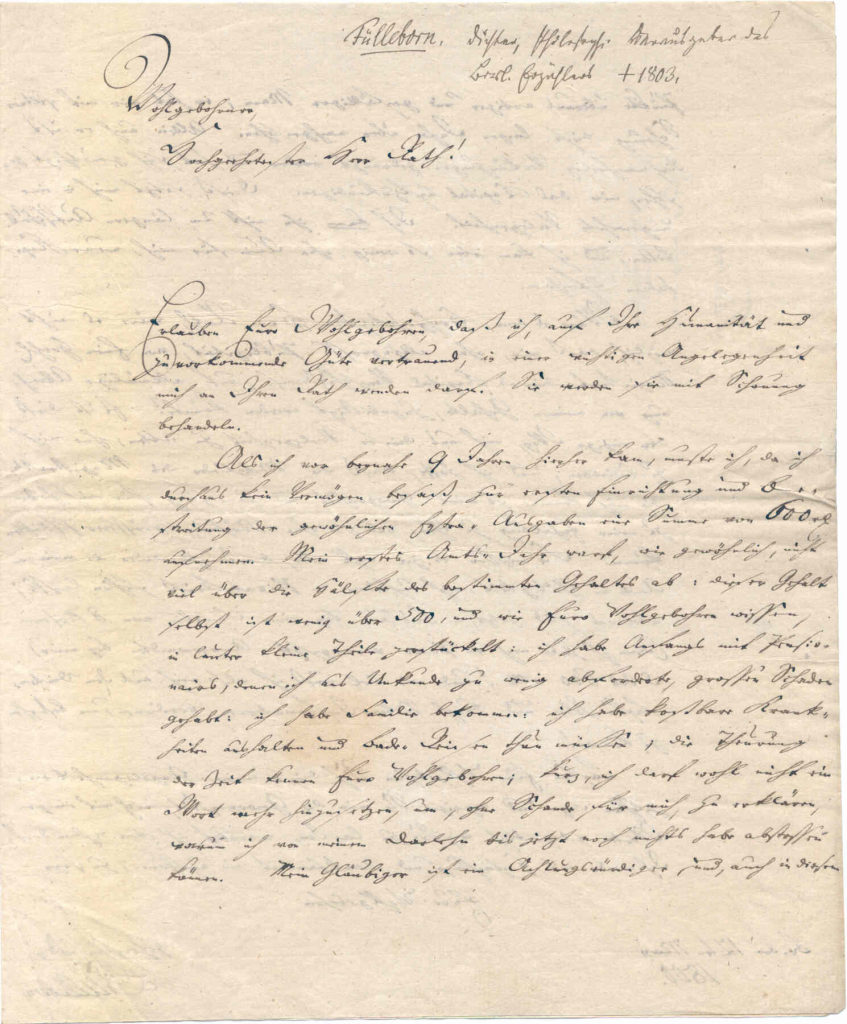 Fülleborn. Dichter, Philosoph. Herausgeber des
Bresl. Erzählers † 1803.
Wohlgebohrner,
Hochgeehrtester Herr Rath!
Erlauben Euro Wohlgebohren, daß ich, auf Ihre Humanität und
zuvorkommende Güte vertrauend, in einer wichtigen Angelegenheit
mich an Ihren Rath wenden darf. Sie werden sie mit Schonung
behandeln.
Als ich vor beynahe 9 Jahren hieher kam, muste ich, da ich
durchaus kein Vermögen besaß, zur ersten Einrichtung und Be-
streitung der gewöhnlichen Extra-Ausgaben eine Summe von 600 rl
aufnehmen. Mein erstes Amts-Jahr warf, wie gewöhnlich, nicht
viel über die Hälfte des bestimmten Gehaltes ab: dieser Gehalt
selbst ist wenig über 500, und wie Euro Wohlgebohren wissen,
in lauter kleine Theile zerstückelt: ich habe Anfangs mit Pensio-
nairs, denen ich aus Unkunde zu wenig abforderte, grossen Schaden
gehabt: ich habe Familie bekommen: ich habe kostbare Krank-
heiten aushalten und Bade-Reisen thun müssen; die Theurung
der Zeit kennen Euro Wohlgebohren; kurz, ich darf wohl nicht ein
Wort mehr hinzusetzen, um, ohne Schande für mich, zu erklären,
warum ich von meinem Darlehn bis jetzt noch nichts habe abstossen
können. Mein Gläubiger ist ein Achtungswürdiger, und, auch in diesem